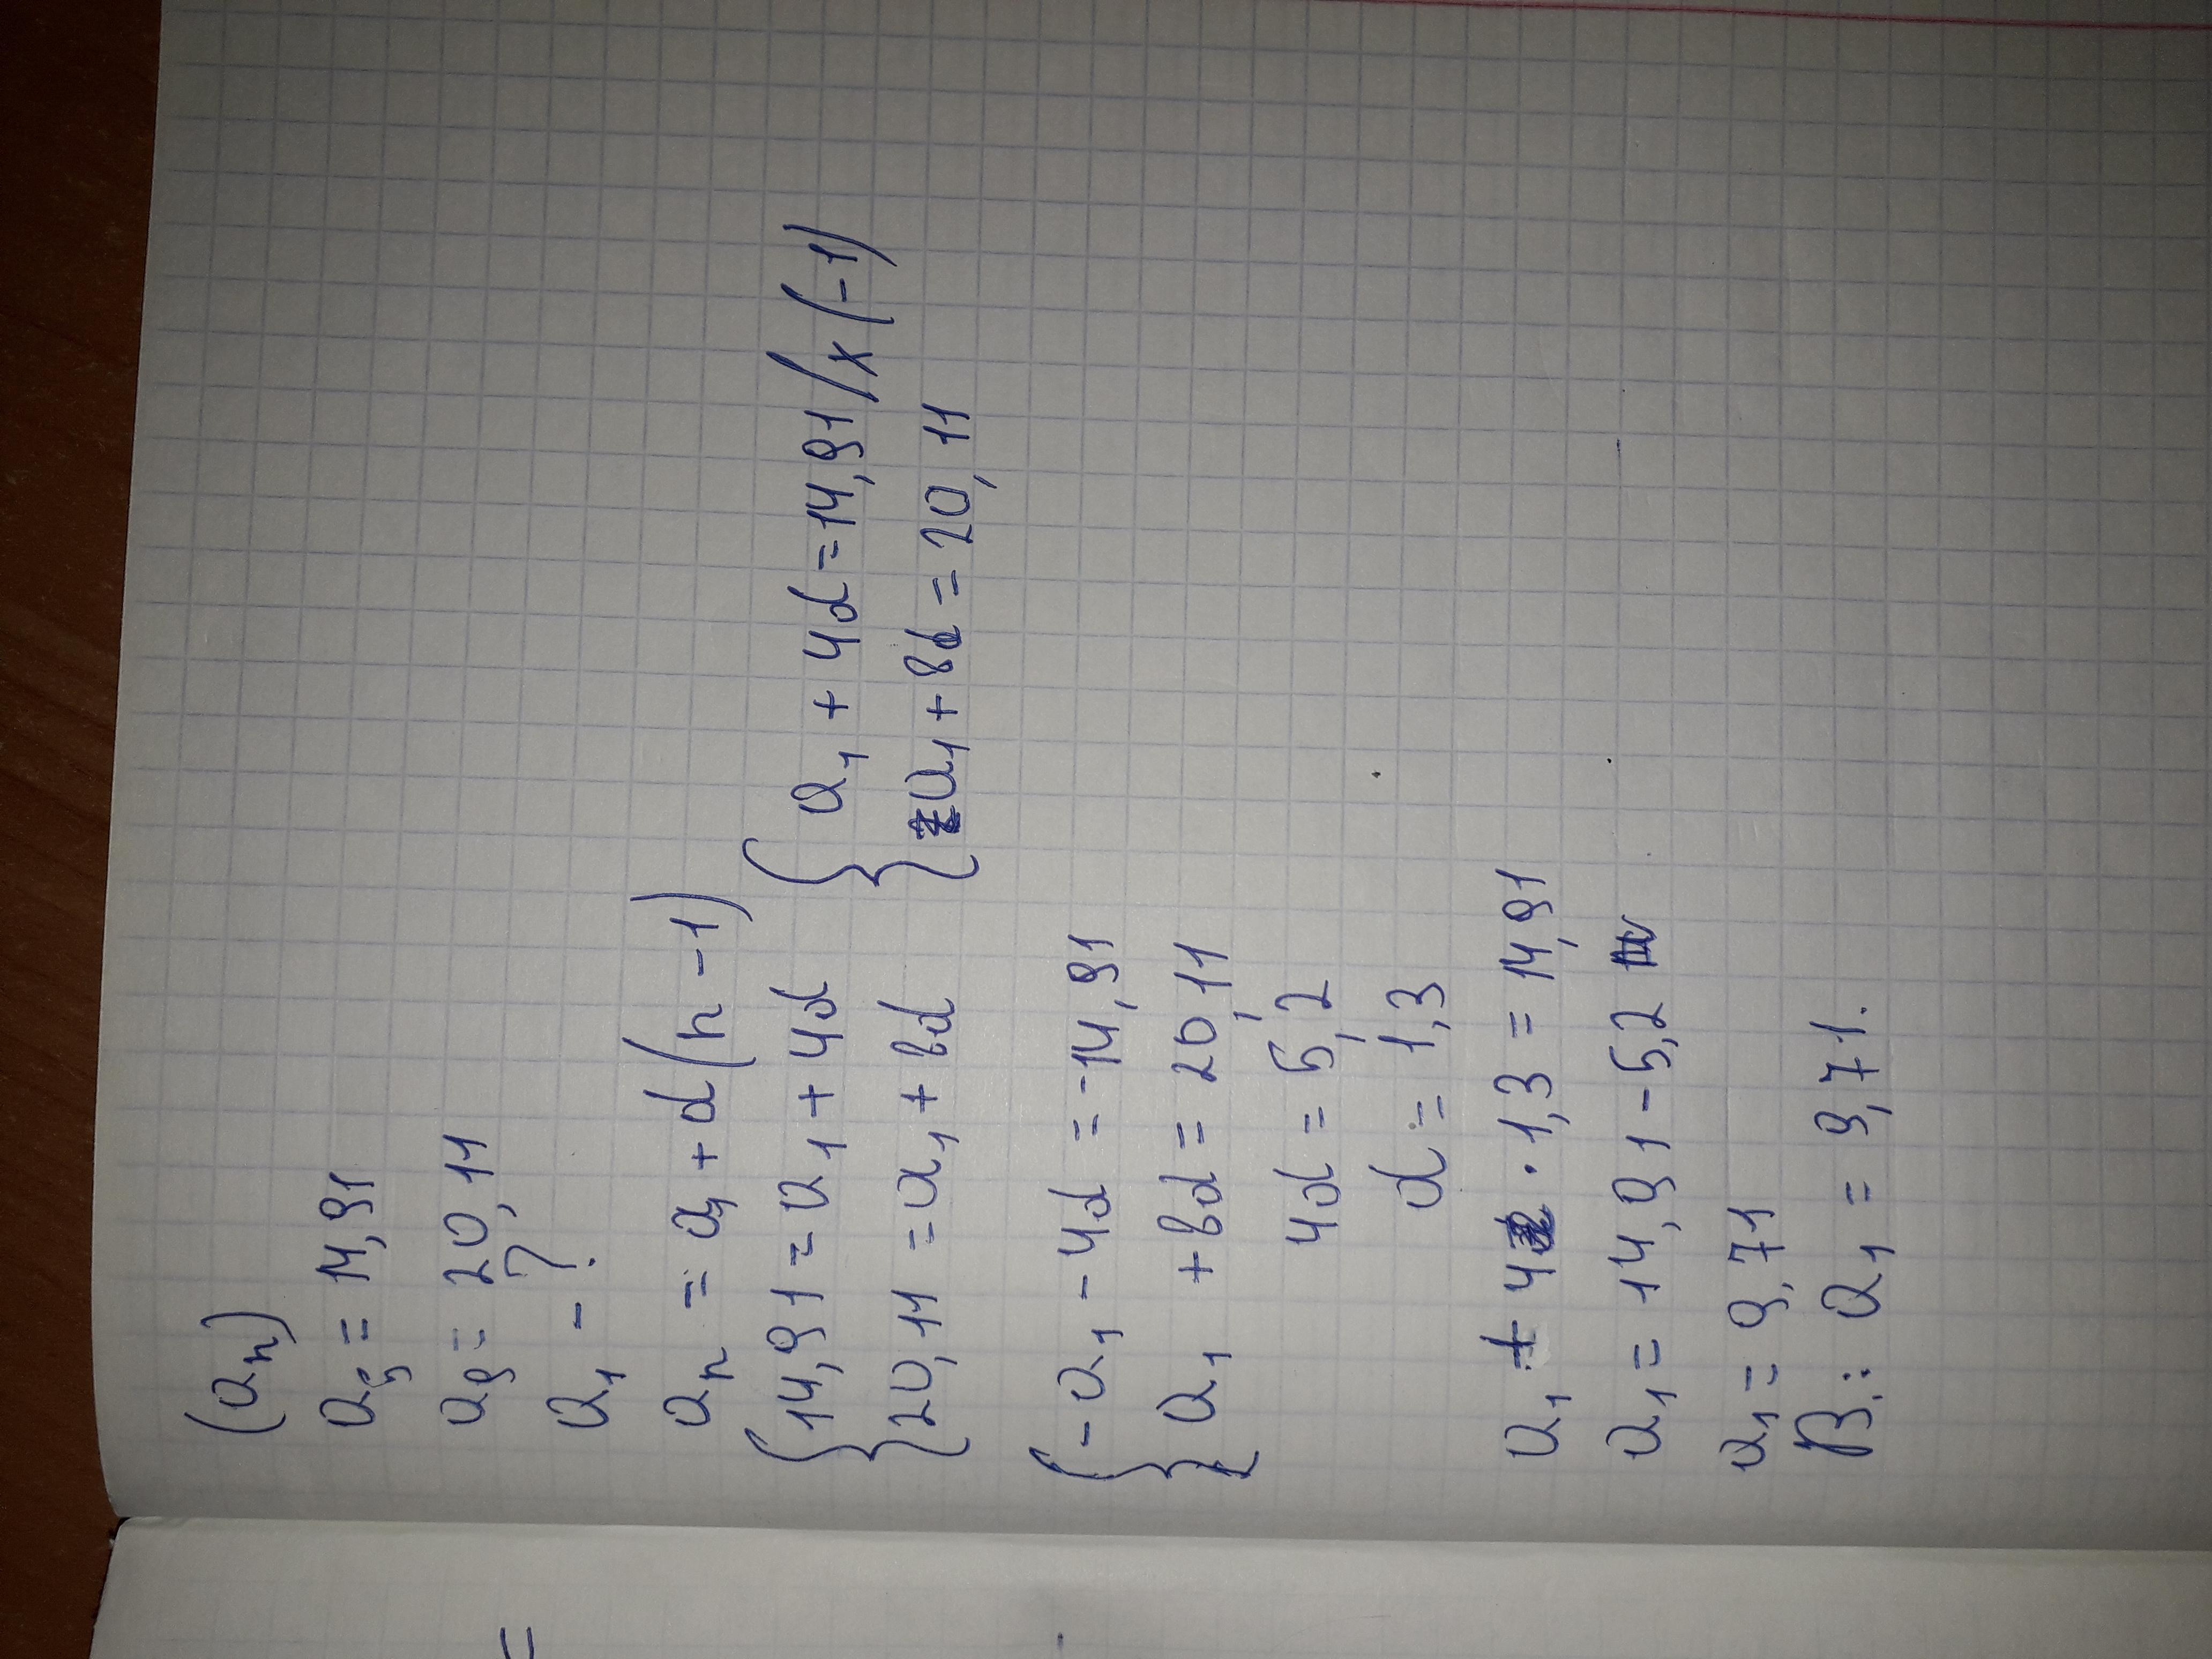 (aₙ)
a₅ = 14,91
a₉ = 20,11
a₁ - ?
aₙ = a₁ + d(n - 1)
{ 14,91 = a₁ + 4d { a₁ + 4d = 14,91 / x (-1)
20,11 = a₁ + 8d a₁ + 8d = 20,11
{ - a₁ - 4d = -14,91
a₁ + 8d = 20,11
4d = 5,2
d = 1,3
a₁ + 4 · 1,3 = 14,91
a₁ = 14,91 - 5,2
a₁ = 9,71
В.: a₁ = 9,71.
=